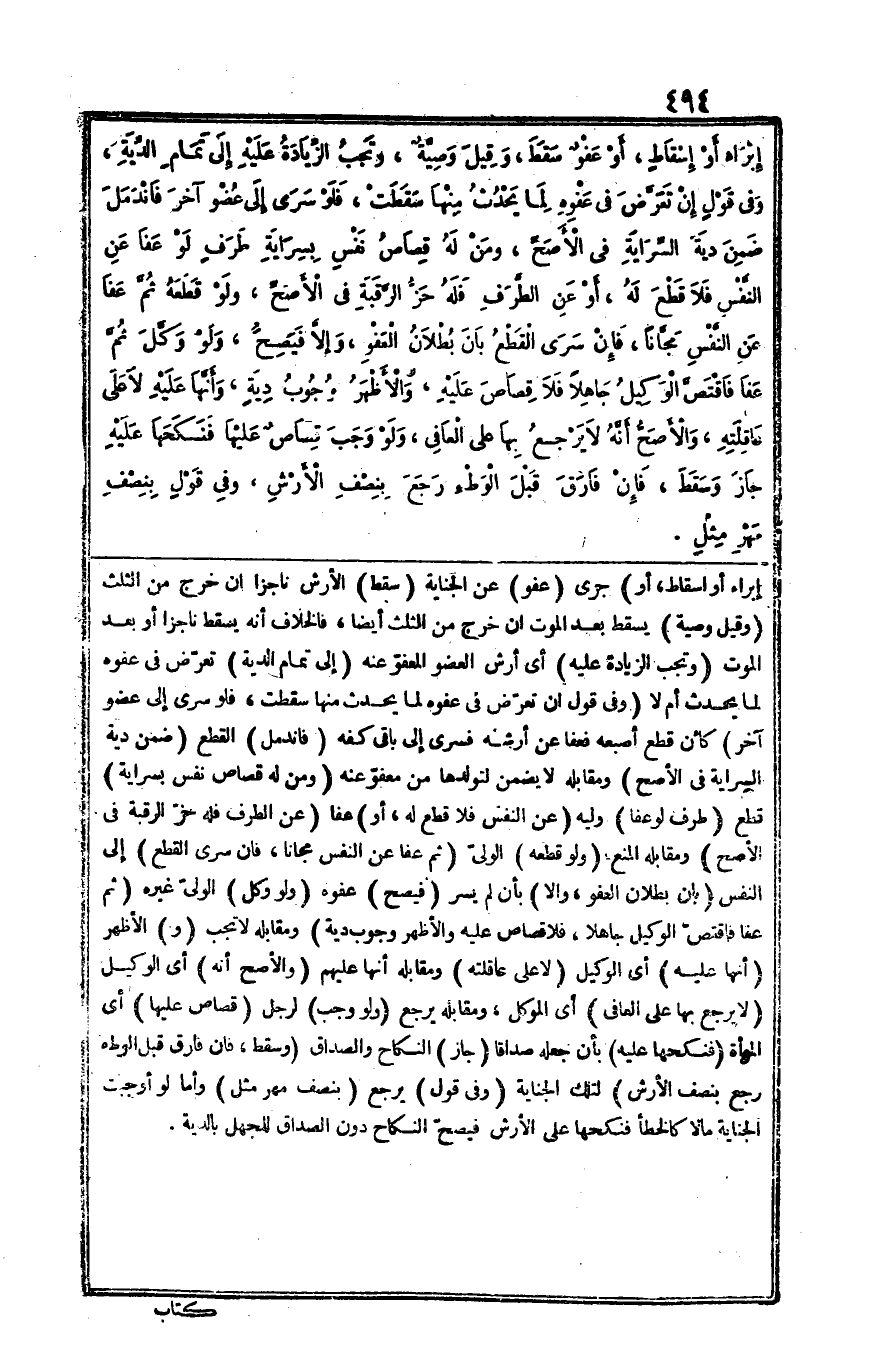 ٤٩٤
إِبْرَاءٍ أَوْ إِسْقَاطٍ ، أَوْ عَفْوٍ سَقَطَ ، وَقِيلَ وَصِيَّةٌ ، وَتَجِبُ الزِّيَادَةُ عَلَيْهِ إِلَى تَمَامِ الدِّيَةِ ،
وَفِى قَوْلٍ إِنْ تَعَرَّضَ فِى عَفْوِهِ لِمَا يَحْدُثُ مِنْهَا سَقَطَتْ ، فَلَوْ سَرَى إِلَى عُضْوٍ آخَرَ فَانْدَمَلَ
ضَمِنَ دِيَةَ السِّرَايَةِ فِى الْأَصَحِّ ، وَمَنْ لَهُ قِصَاصُ نَفْسٍ بِسِرَايَةِ طَرَفٍ لَوْ عَفَا عَنِ
النَّفْسِ فَلَا قَطْعَ لَهُ ، أَوْ عَنِ الطَّرَفِ فَلَهُ حَزُّ الرَّقَبَةِ فِى الْأَصَحِّ ، وَلَوْ قَطَعَهُ ثُمَّ عَفَا
عَنِ النَّفْسِ مَجَّانًا ، فَإِنْ سَرَى الْقَطْعُ بَانَ بُطْلَانُ الْعَفْوِ ، وَإِلَّا فَيَصِحُّ ، وَلَوْ وَكَّلَ ثُمَّ
عَفَا فَاقْتَصَّ الْوَكِيلُ جَاهِلًا فَلَا قِصَاصَ عَلَيْهِ ، وَالْأَظْهَرُ وُجُوبُ دِيَةٍ ، وَأَنَّهَا عَلَيْهِ لَاعَلَى
عَاقِلَتِهِ ، وَالْأَصَحُّ أَنَّهُ لَايَرْجِعُ بِهَا عَلَى الْعَافِى ، وَلَوْ وَجَبَ قِصَاصٌ عَلَيْهَا فَنَكَحَهَا عَلَيْهِ
جَازَ وَسَقَطَ ، فَإِنْ فَارَقَ قَبْلَ الْوَطْءِ رَجَعَ بِنِصْفِ الْأَرْشِ ، وَفِى قَوْلٍ بِنِصْفِ
مَهْرِ مِثْلٍ .
إبراء أو اسقاط، أو) جرى (عفو) عن الجناية (سقط) الأرش ناجزا ان خرج من الثلث
(وقيل وصية) يسقط بعد الموت ان خرج من الثلث أيضا ، فالخلاف أنه يسقط ناجزا أو بعد
الموت (وتجب الزيادة عليه) أى أرش العضو المعفوّ عنه (إلى تمام الدية) تعرّض فى عفوه
لما يحدث أم لا (وفى قول ان تعرّض فى عفوه لما يحدث منها سقطت ، فلو سرى إلى عضو
آخر) كأن قطع أصبعه فعفا عن أرشه فسرى إلى باقى كفه (فاندمل) القطع (ضمن دية
السراية فى الأصح) ومقابله لايضمن لتولدها من معفوّ عنه (ومن له قصاص نفس بسراية)
قطع (طرف لوعفا) وليه (عن النفس فلا قطع له ، أو) عفا (عن الطرف فله حزّ الرقبة فى
الأصح) ومقابله المنع (ولو قطعه) الولىّ (ثم عفا عن النفس مجانا ، فان سرى القطع) إلى
النفس (بان بطلان العفو ، والا) بأن لم يسر (فيصح) عفوه (ولو وكل) الولىّ غيره (ثم
عفا فاقتصّ الوكيل جاهلا ، فلاقصاص عليه والأظهر وجوب دية) ومقابله لاتجب (و) الأظهر
(أنها عليه) أى الوكيل (لاعلى عاقلته) ومقابله أنها عليهم (والأصح أنه) أى الوكيل
(لايرجع بها على العافى) أى الموكل ، ومقابله يرجع (ولو وجب) لرجل (قصاص عليها) أى
المرأة (فنكحها عليه) بأن جعله صداقا (جاز) النكاح والصداق (وسقط ، فان فارق قبل الوطء
رجع بنصف الأرش) لتلك الجناية (وفى قول) يرجع (بنصف مهر مثل) وأما لو أوجبت
الجناية مالا كالخطأ فنكحها على الأرش فيصحّ النكاح دون الصداق للجهل بالدية .
كتاب